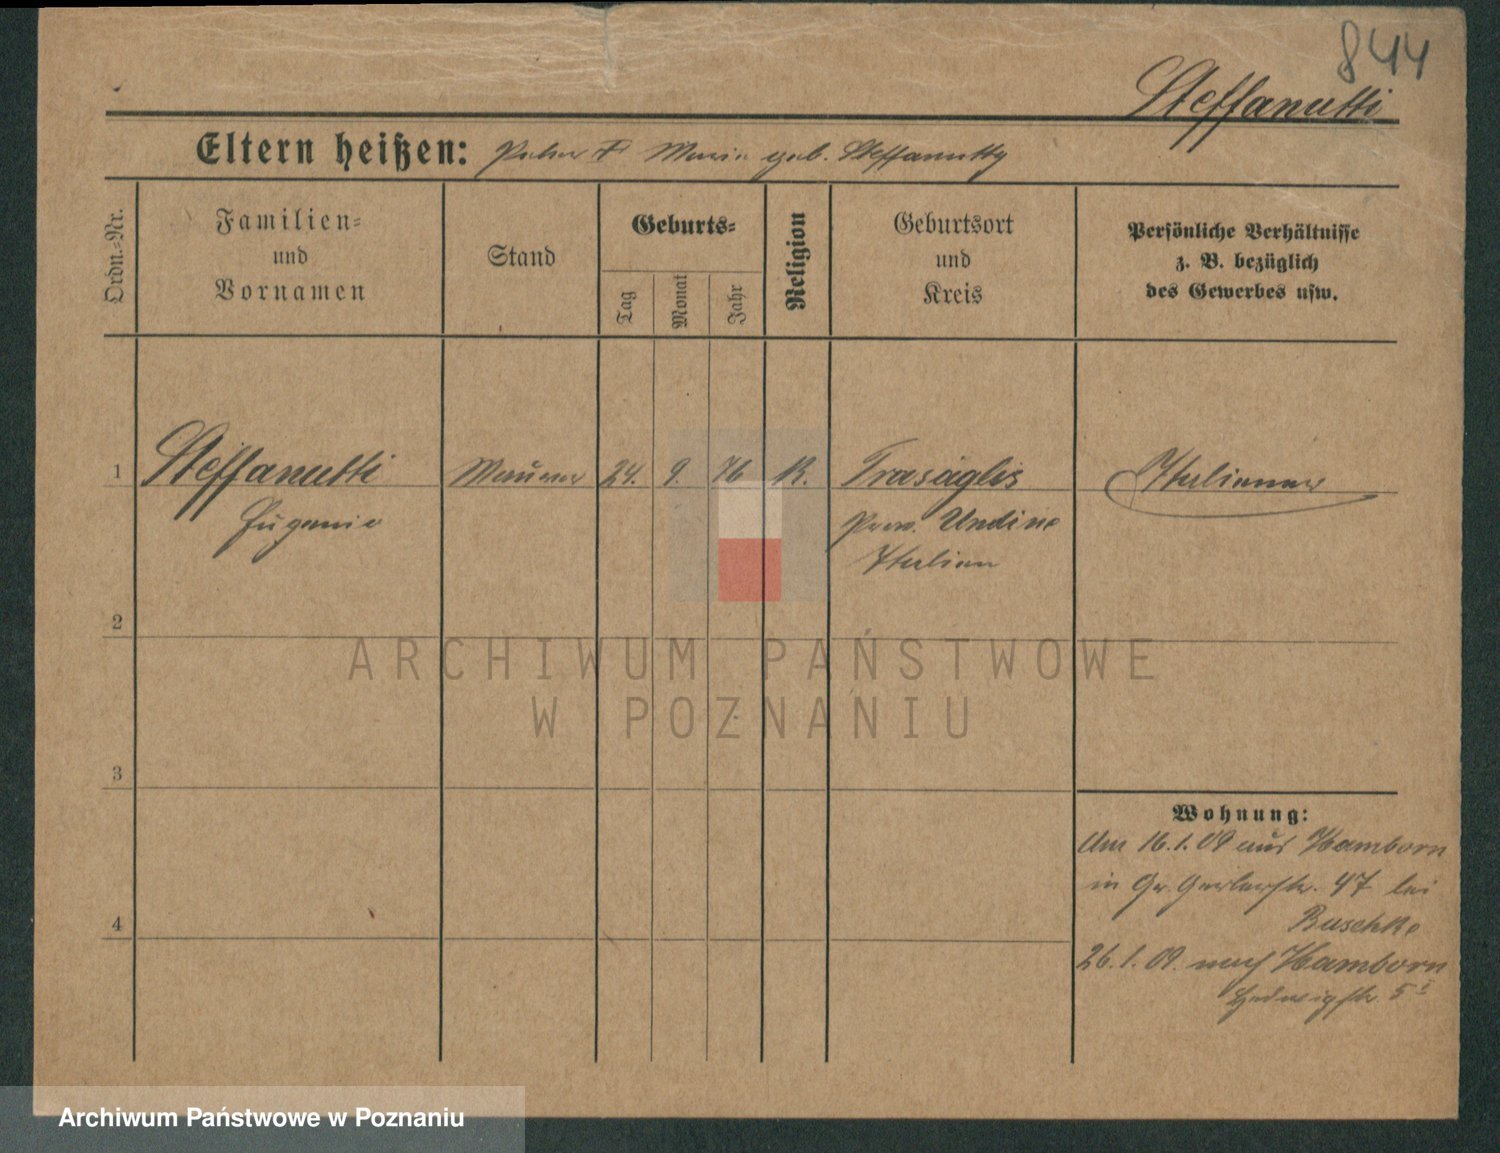 844
Steffanutti
Eltern heißen: Peter † Maria geb. Steffanutty
Ordn.-Nr.
Familien-
und
Vornamen
Stand
Geburts-
Tag
Monat
Jahr
Religion
Geburtsort
und
Kreis
Persönliche Verhältnisse
z. B. bezüglich
des Gewerbes usw.
1 Steffanutti Maurer 24. 9. 76 K. Trasaglis Italiener
Eugenio Prov. Undine
Italien
2
3
4
Wohnung:
Am 16.1.09 aus Hamborn
in Gr. Gerberstr. 47 bei
Buschke
26.1.09. nach Hamborn
Hedwigstr. 5 I
ARCHIWUM PAŃSTWOWE
W POZNANIU
Archiwum Państwowe w Poznaniu